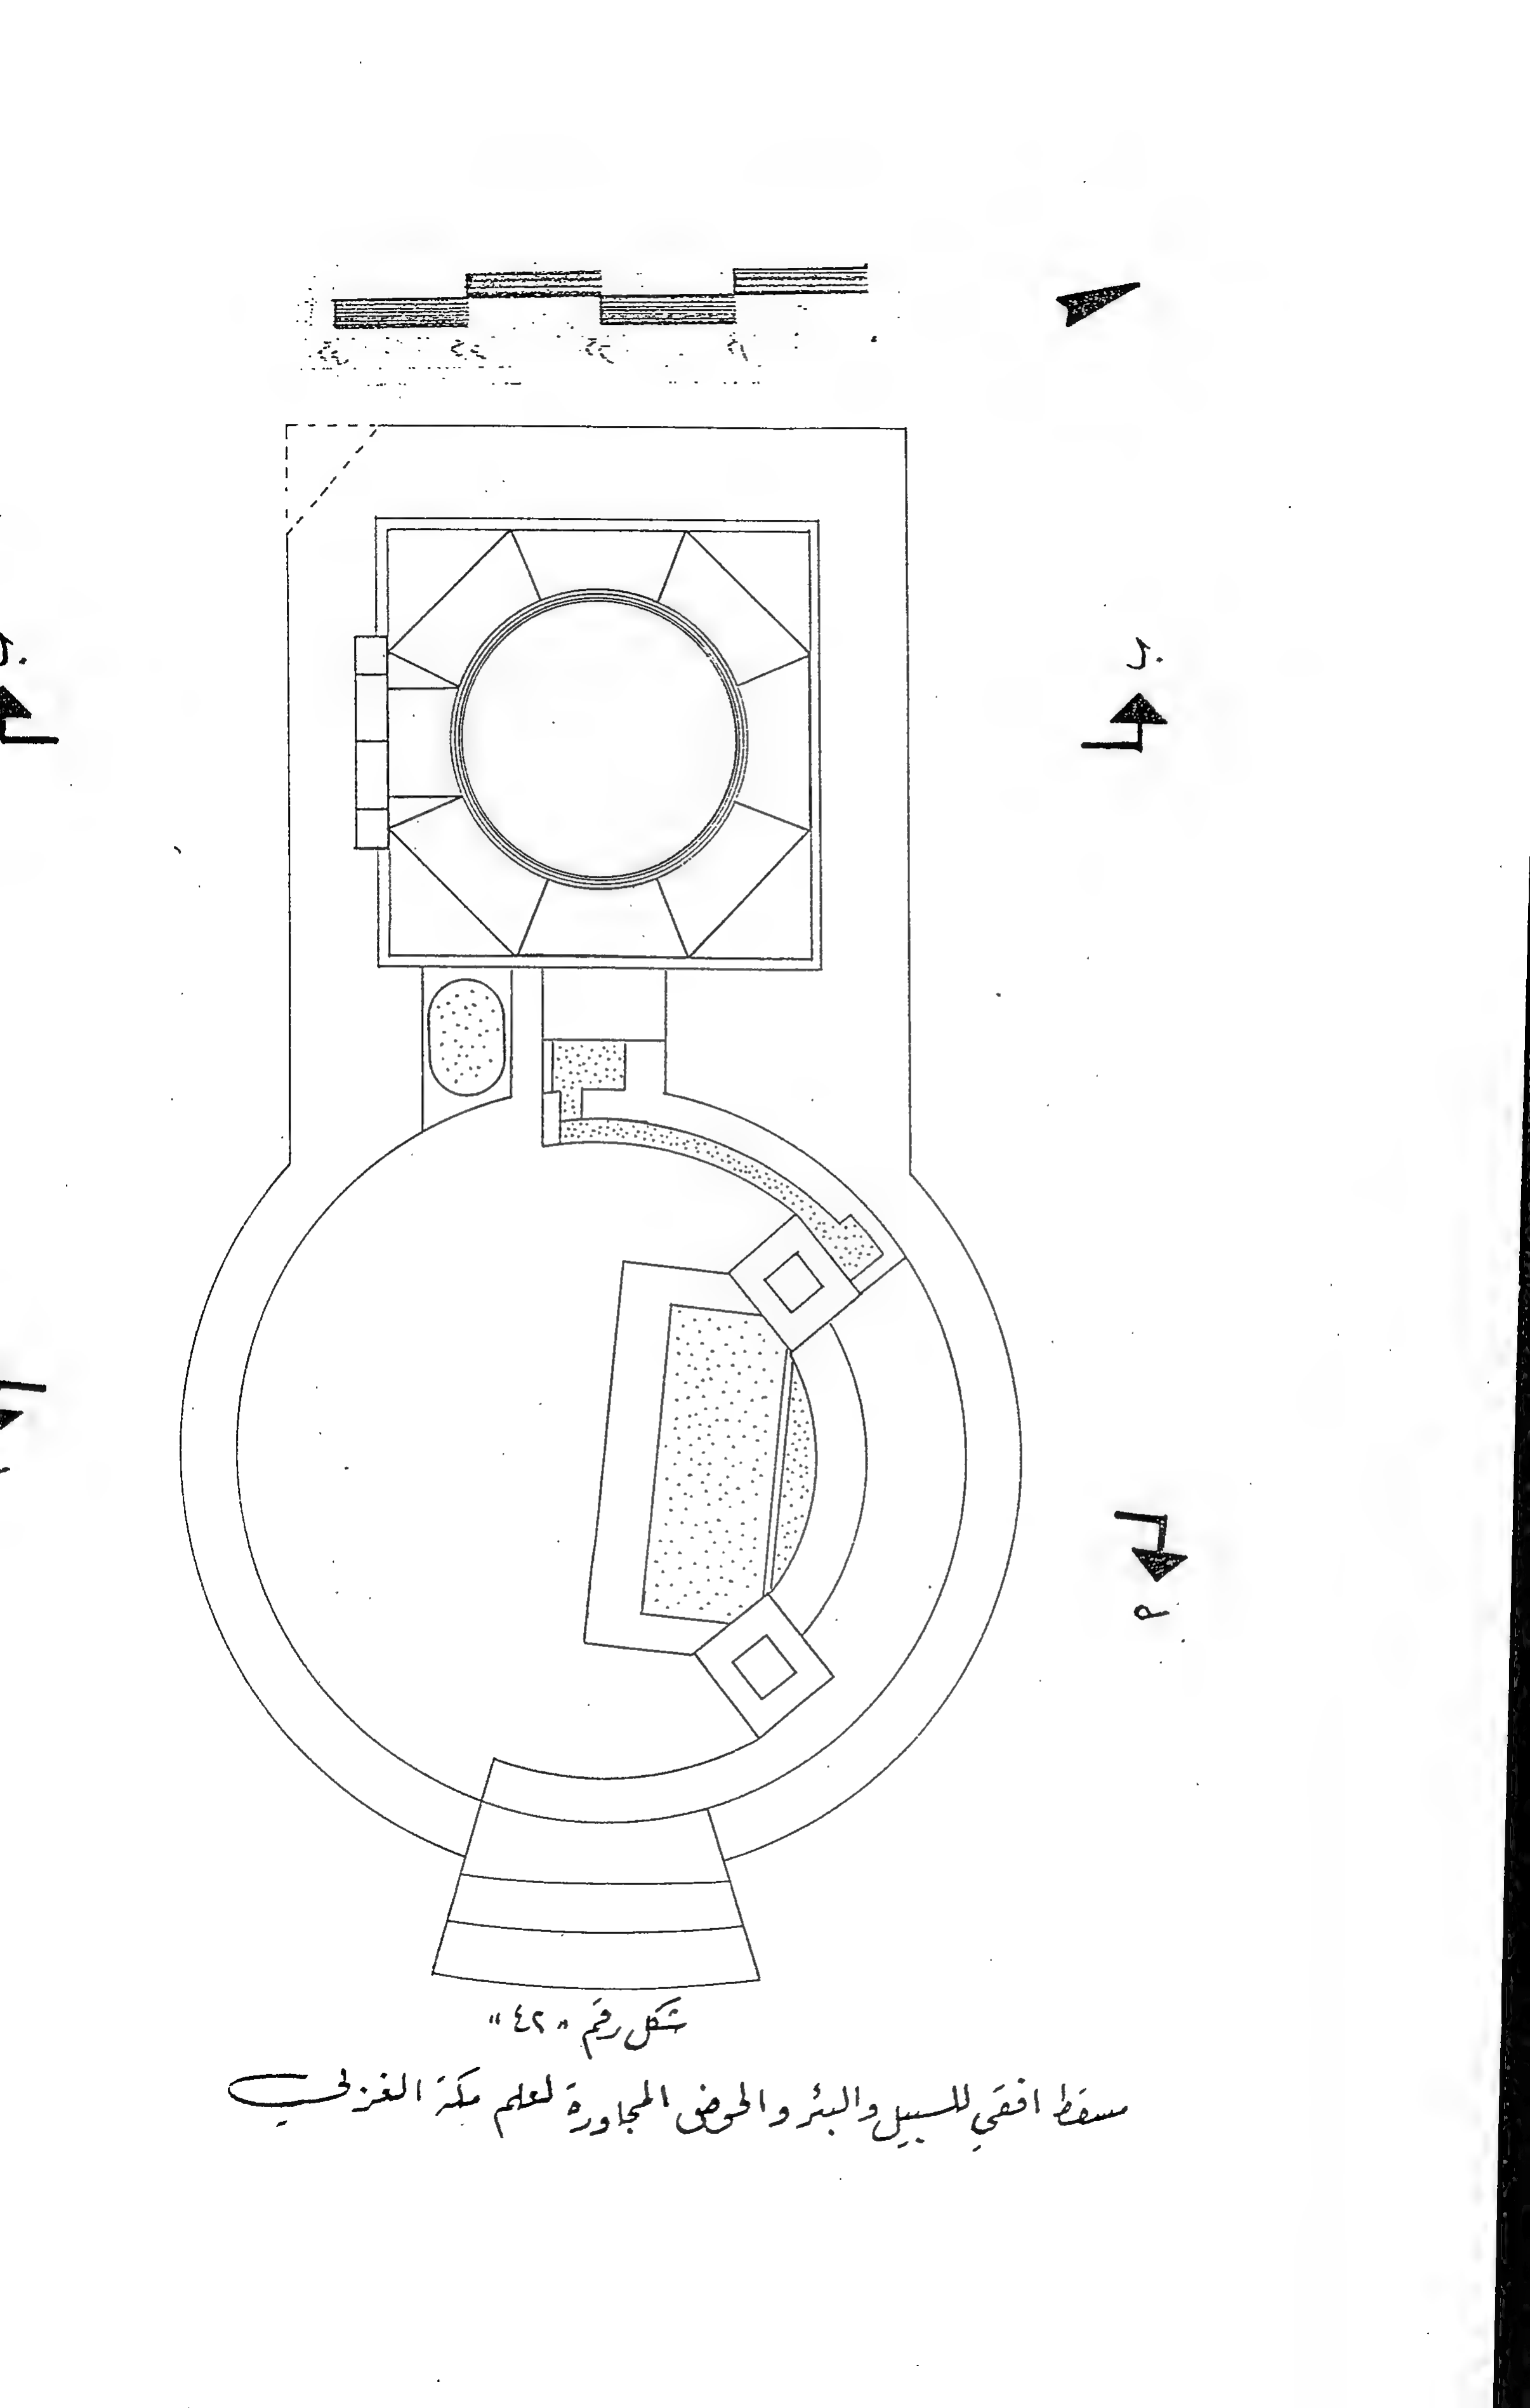 ٤م ٣م ٢م ١م ٠
ب
م
شكل رقم "٤٢"
مسقط افقي للسبيل والبئر والحوض المجاورة لعلم مكة الغربي